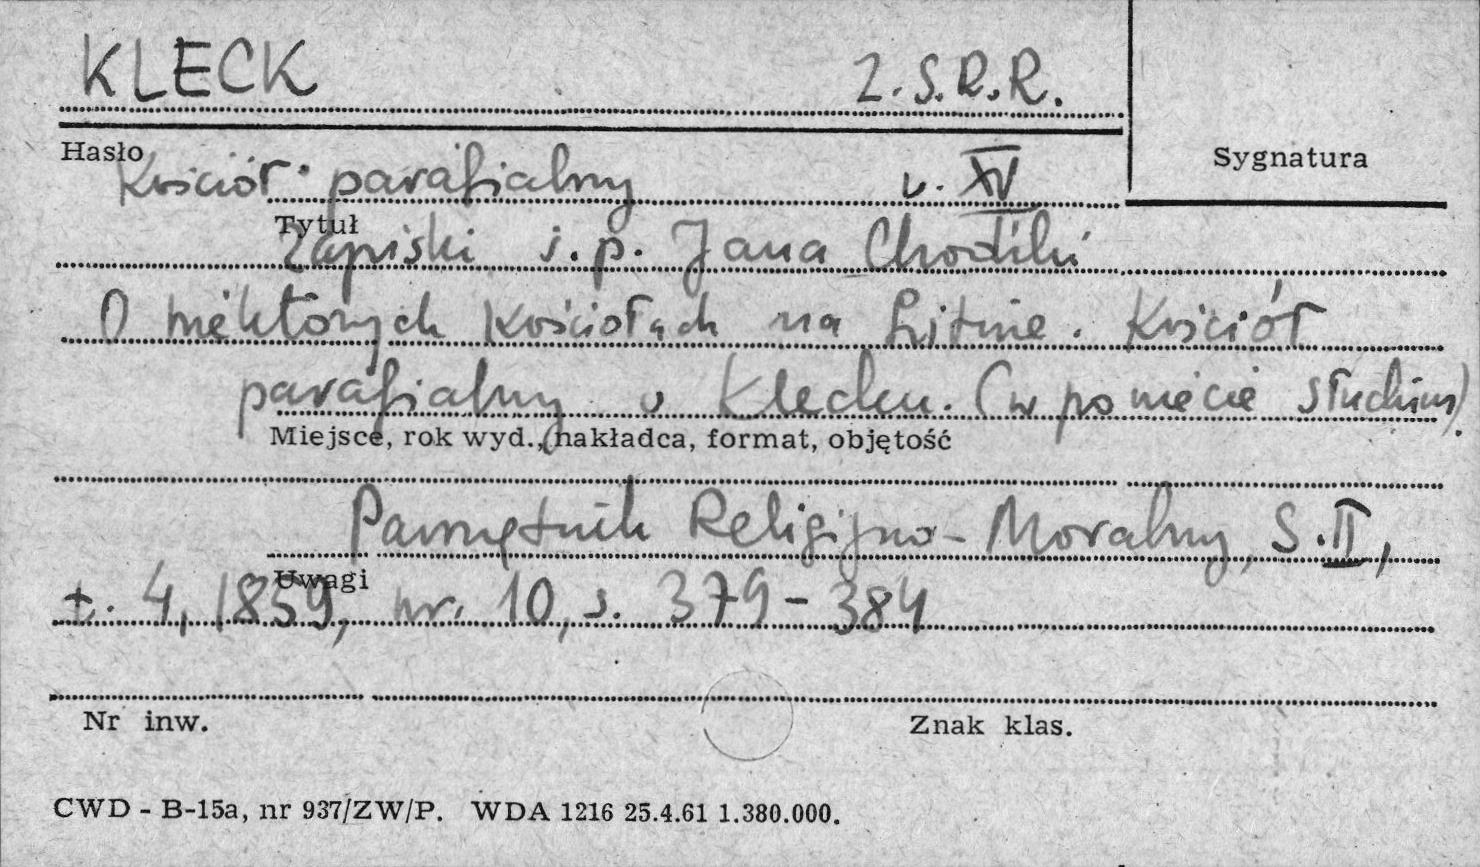 KLECK Z.S.R.R.
Hasło
Sygnatura
Kościół parafialny w. XV
Tytuł
Zapiski ś.p. Jana Chodźki
O niektórych kościołach na Litwie. Kościół
parafialny w Klecku. (w powiecie słuckim).
Miejsce, rok wyd., nakładca, format, objętość
Pamiętnik Religijno-Moralny, S.II,
Uwagi
t. 4, 1859, nr. 10, s. 379-384
Nr inw. Znak klas.
CWD - B-15a, nr 937/ZW/P. WDA 1216 25.4.61 1.380.000.